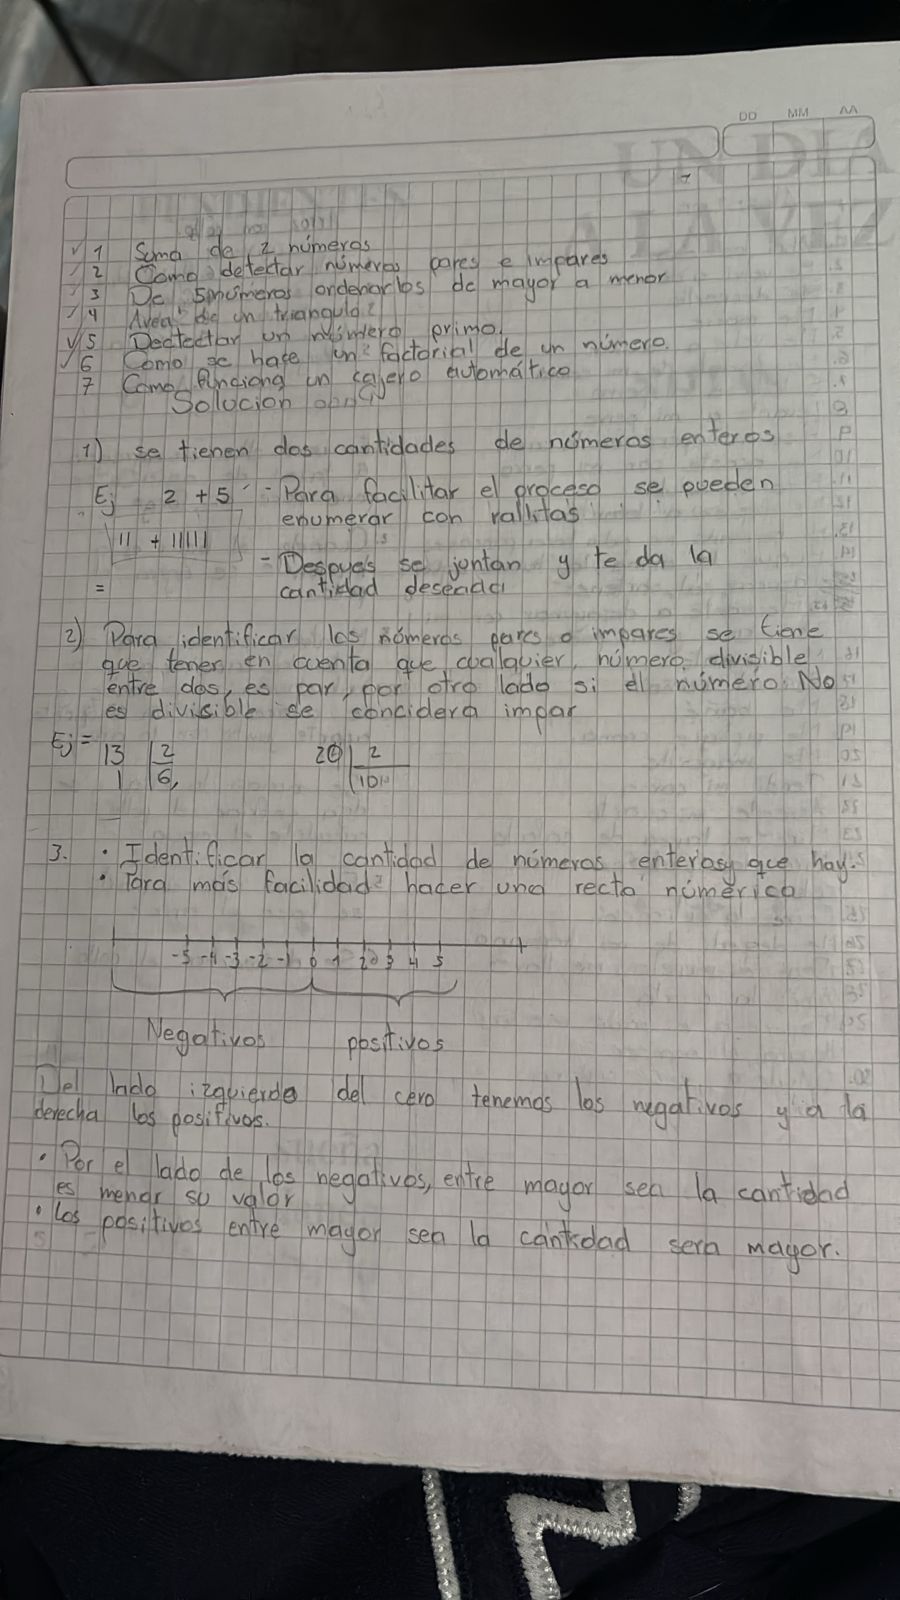 DD MM AA
1 Suma de 2 números
2 Como detectar números pares e impares
3 De 5 números ordenarlos de mayor a menor
4 Area de un triangulo
5 Dectectar un número primo
6 Como se hace un factorial de un número
7 Como funciona un cajero automático
Solucion
1) se tienen dos cantidades de números enteros
Ej 2 + 5 - Para facilitar el proceso se pueden
enumerar con rallitas
11 + 11111
- Despues se juntan y te da la
= cantidad deseada
2) Para identificar los números pares o impares se tiene
que tener en cuenta que cualquier número divisible
entre dos, es par, por otro lado si el número No
es divisible se concidera impar
Ej = 13 2 20 2
1 6 10
3. • Identificar la cantidad de números enteros que hay.
• Para más facilidad hacer una recta númerica
-5 -4 -3 -2 -1 0 1 2 3 4 5
Negativos positivos
Del lado izquierdo del cero tenemos los negativos y a la
derecha los positivos.
• Por el lado de los negativos, entre mayor sea la cantidad
es menor su valor
• Los positivos entre mayor sea la cantidad sera mayor.